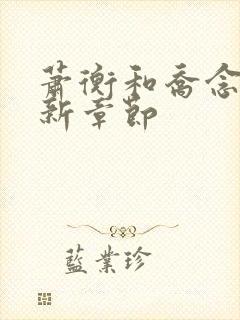 萧衡和乔念
新章节
蓝业珍